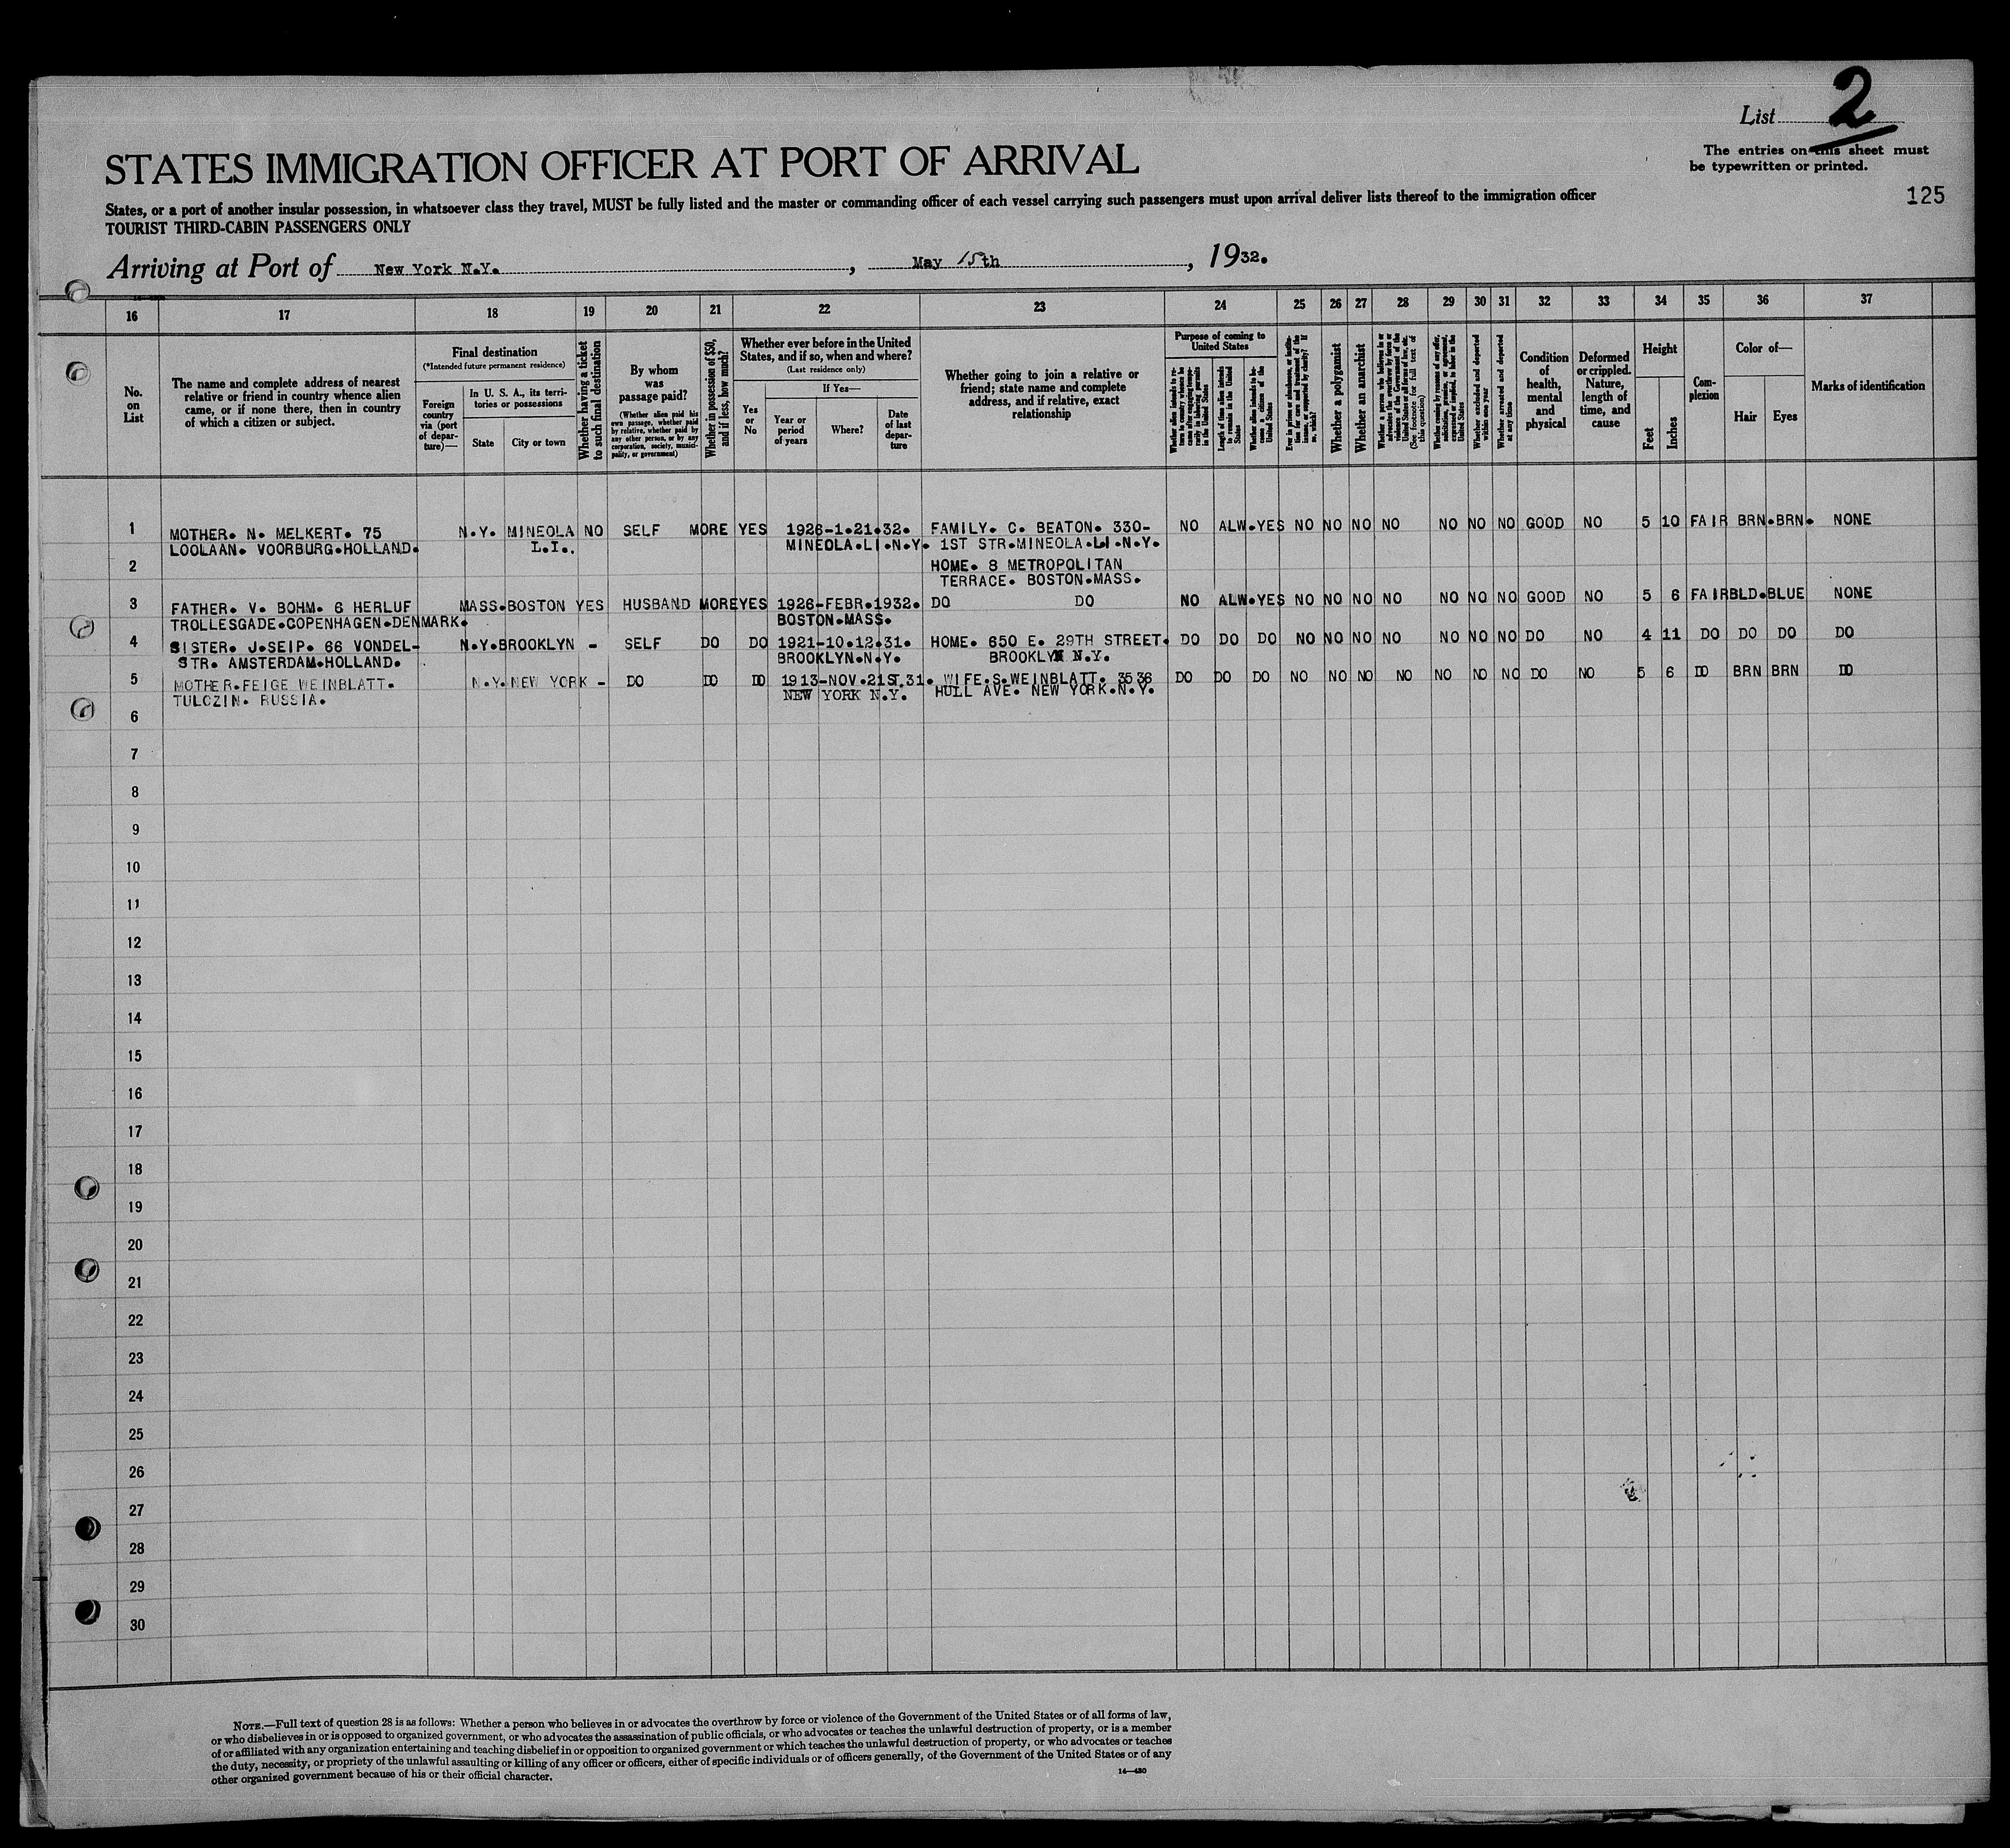 List 2
The entries on this sheet must
be typewritten or printed.
STATES IMMIGRATION OFFICER AT PORT OF ARRIVAL
125
States, or a port of another insular possession, in whatsoever class they travel, MUST be fully listed and the master or commanding officer of each vessel carrying such passengers must upon arrival deliver lists thereof to the immigration officer
TOURIST THIRD-CABIN PASSENGERS ONLY
Arriving at Port of New York N.Y., May 15th, 1932.
16 17 18 19 20 21 22 23 24 25 26 27 28 29 30 31 32 33 34 35 36 37
No.
on
List
The name and complete address of nearest
relative or friend in country whence alien
came, or if none there, then in country
of which a citizen or subject.
Final destination
(*Intended future permanent residence)
Foreign
country
via (port
of depar-
ture)—
In U. S. A., its terri-
tories or possessions
State
City or town
Whether having a ticket
to such final destination
By whom
was
passage paid?
(Whether alien paid his
own passage, whether paid
by relative, whether paid by
any other person, or by any
corporation, society, munici-
pality, or government)
Whether in possession of $50,
and if less, how much?
Whether ever before in the United
States, and if so, when and where?
(Last residence only)
Yes
or
No
If Yes—
Year or
period
of years
Where?
Date
of last
depar-
ture
Whether going to join a relative or
friend; state name and complete
address, and if relative, exact
relationship
Purpose of coming to
United States
Length of time alien intends
to remain in the United
States
Whether alien intends to be-
come a citizen of the
United States
Whether a polygamist
Whether an anarchist
Whether excluded and deported
within one year
Whether arrested and deported
at any time
Condition
of
health,
mental
and
physical
Deformed
or crippled.
Nature,
length of
time, and
cause
Height
Feet
Inches
Com-
plexion
Color of—
Hair
Eyes
Marks of identification
1 MOTHER. N. MELKERT. 75 N.Y. MINEOLA NO SELF MORE YES 1926-1.21.32. FAMILY. C. BEATON. 330- NO ALW.YES NO NO NO NO NO NO NO GOOD NO 5 10 FAIR BRN.BRN. NONE
LOOLAAN. VOORBURG.HOLLAND. L.I.. MINEOLA.LI.N.Y. 1ST STR.MINEOLA.LI.N.Y.
2 HOME. 8 METROPOLITAN
TERRACE. BOSTON.MASS.
3 FATHER. V. BOHM. 6 HERLUF MASS.BOSTON YES HUSBAND MORE YES 1926-FEBR.1932. DO DO NO ALW.YES NO NO NO NO NO NO NO GOOD NO 5 6 FAIR BLD.BLUE NONE
TROLLESGADE.COPENHAGEN.DENMARK. BOSTON.MASS.
4 SISTER. J.SEIP. 66 VONDEL- N.Y.BROOKLYN - SELF DO DO 1921-10.12.31. HOME. 650 E. 29TH STREET. DO DO DO NO NO NO NO NO NO NO DO NO 4 11 DO DO DO DO
STR. AMSTERDAM.HOLLAND. BROOKLYN.N.Y. BROOKLYN N.Y.
5 MOTHER.FEIGE WEINBLATT. N.Y.NEW YORK - DO DO DO 1913-NOV.21ST.31. WIFE.S.WEINBLATT. 3536 DO DO DO NO NO NO NO NO NO NO DO NO 5 6 DO BRN BRN DO
TULCZIN. RUSSIA. NEW YORK N.Y. HULL AVE. NEW YORK.N.Y.
6
7
8
9
10
11
12
13
14
15
16
17
18
19
20
21
22
23
24
25
26
27
28
29
30
NOTE.—Full text of question 28 is as follows: Whether a person who believes in or advocates the overthrow by force or violence of the Government of the United States or of all forms of law,
or who disbelieves in or is opposed to organized government, or who advocates the assassination of public officials, or who advocates or teaches the unlawful destruction of property, or is a member
of or affiliated with any organization entertaining and teaching disbelief in or opposition to organized government or which teaches the unlawful destruction of property, or who advocates or teaches
the duty, necessity, or propriety of the unlawful assaulting or killing of any officer or officers, either of specific individuals or of officers generally, of the Government of the United States or of any
other organized government because of his or their official character.
14—430